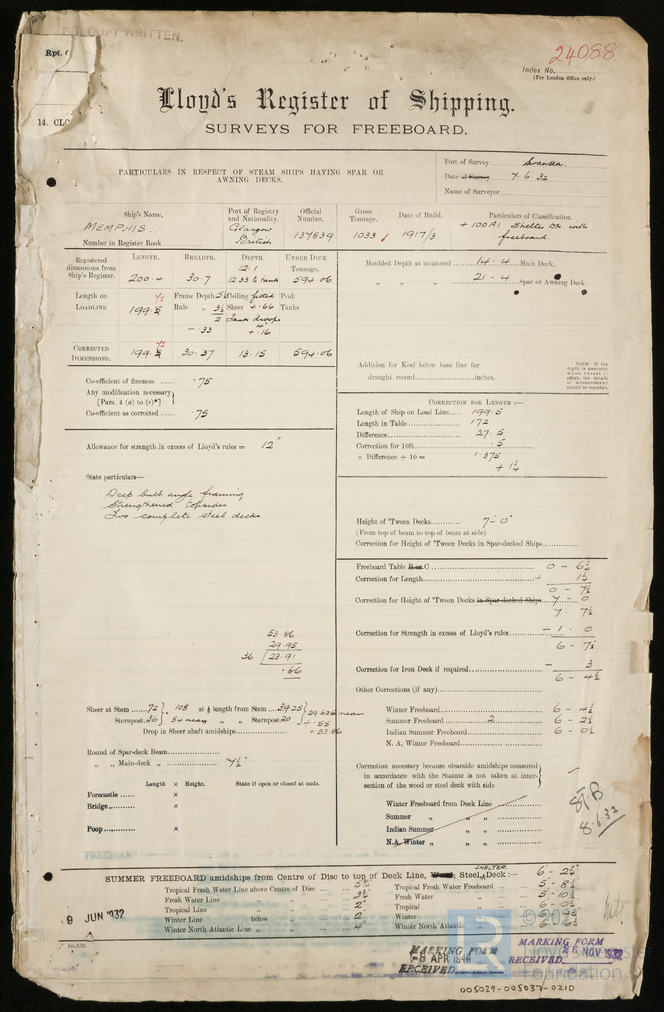 COPY WRITTEN.
Rpt.
24088
Index No.
(For London Office only.)
Lloyd's Register of Shipping.
14. CLO
SURVEYS FOR FREEBOARD.
PARTICULARS IN RESPECT OF STEAM SHIPS HAVING SPAR OR
AWNING DECKS.
Port of Survey Swansea.
Date of Survey 7.6.32
Name of Surveyor
Ship's Name. Port of Registry and Nationality. Official Number. Gross Tonnage. Date of Build. Particulars of Classification.
MEMPHIS. Glasgow British 137839 1033 1917/3 +100A1 Shelter Dk. with freeboard.
Number in Register Book
Registered dimensions from Ship's Register. LENGTH. BREADTH. DEPTH. UNDER DECK TONNAGE.
200.4 30.7 12.1 12.33 to tank 594.06
Moulded Depth as measured 14.4 Main Deck.
" " " 21-4 Spar or Awning Deck
Length on LOADLINE. 199.5 Frame Depth Ceiling fitted Peak
Rule " 3½ Sheer + .66 Tanks
2 Tank drops
- .33 + .16
CORRECTED DIMENSIONS. 199.5 30.37 13.15 594.06
Addition for Keel below base line for
draught record inches.
NOTE: If the depth is measured when vessel is afloat, the details of measurement should be reported.
Co-efficient of fineness .75
Any modification necessary
[Para. 4 (a) to (e)*]
Co-efficient as corrected .75
CORRECTION FOR LENGTH:—
Length of Ship on Load Line 199.5
Length in Table 172
Difference 27.5
Correction for 10ft. .5
× Difference ÷ 10 = 1.375
+ 1¼
Allowance for strength in excess of Lloyd's rules = 12"
State particulars—
Deep bulb angle framing
Strengthened topsides
Two complete steel decks
Height of 'Tween Decks 7-0
(From top of beam to top of beam at side)
Correction for Height of 'Tween Decks in Spar-decked Ships
Freeboard Table B or C 0 - 6¼
Correction for Length + 1¼
0 - 7½
Correction for Height of 'Tween Decks in Spar-decked Ships 7 - 0
7. 7½
Correction for Strength in excess of Lloyd's rules - 1. 0
6 - 7½
Correction for Iron Deck if required - 3
6 - 4½
Other Corrections (if any)
53.86
29.95
36 23.91
.66
Sheer at Stem 72 } 108 at ⅛ length from Stem 39.25 } 29.625 mean
Sternpost 36 } 54 mean " " Sternpost 20 } + .55
Drop in Sheer abaft amidships = 53.86
Winter Freeboard 6 - 4½
Summer Freeboard 2 6 - 2½
Indian Summer Freeboard 6 - 0½
N. A. Winter Freeboard
Round of Spar-deck Beam
" " Main-deck " 7½"
Length × Height. State if open or closed at ends.
Forecastle ×
Bridge ×
Poop ×
Correction necessary because clearside amidships measured
in accordance with the Statute is not taken at inter-
section of the wood or steel deck with side
Winter Freeboard from Deck Line
Summer " " "
Indian Summer " "
N.A. Winter " " "
8.6.32
SUMMER FREEBOARD amidships from Centre of Disc to top of Deck Line, Wood, Steel, SHELTER Deck:— 6 - 2½
Tropical Fresh Water Line above Centre of Disc 5½ Tropical Fresh Water Freeboard 5 - 8½
Fresh Water Line " " 3½ Fresh Water "
Tropical Line " " 2 Tropical "
Winter Line below " 2 Winter "
Winter North Atlantic Line " " 4 Winter North Atlantic "
9 JUN 1932
MARKING FORM
RECEIVED
APR
MARKING FORM
RECEIVED
NOV 1932
Foundation
005029-005037-0210